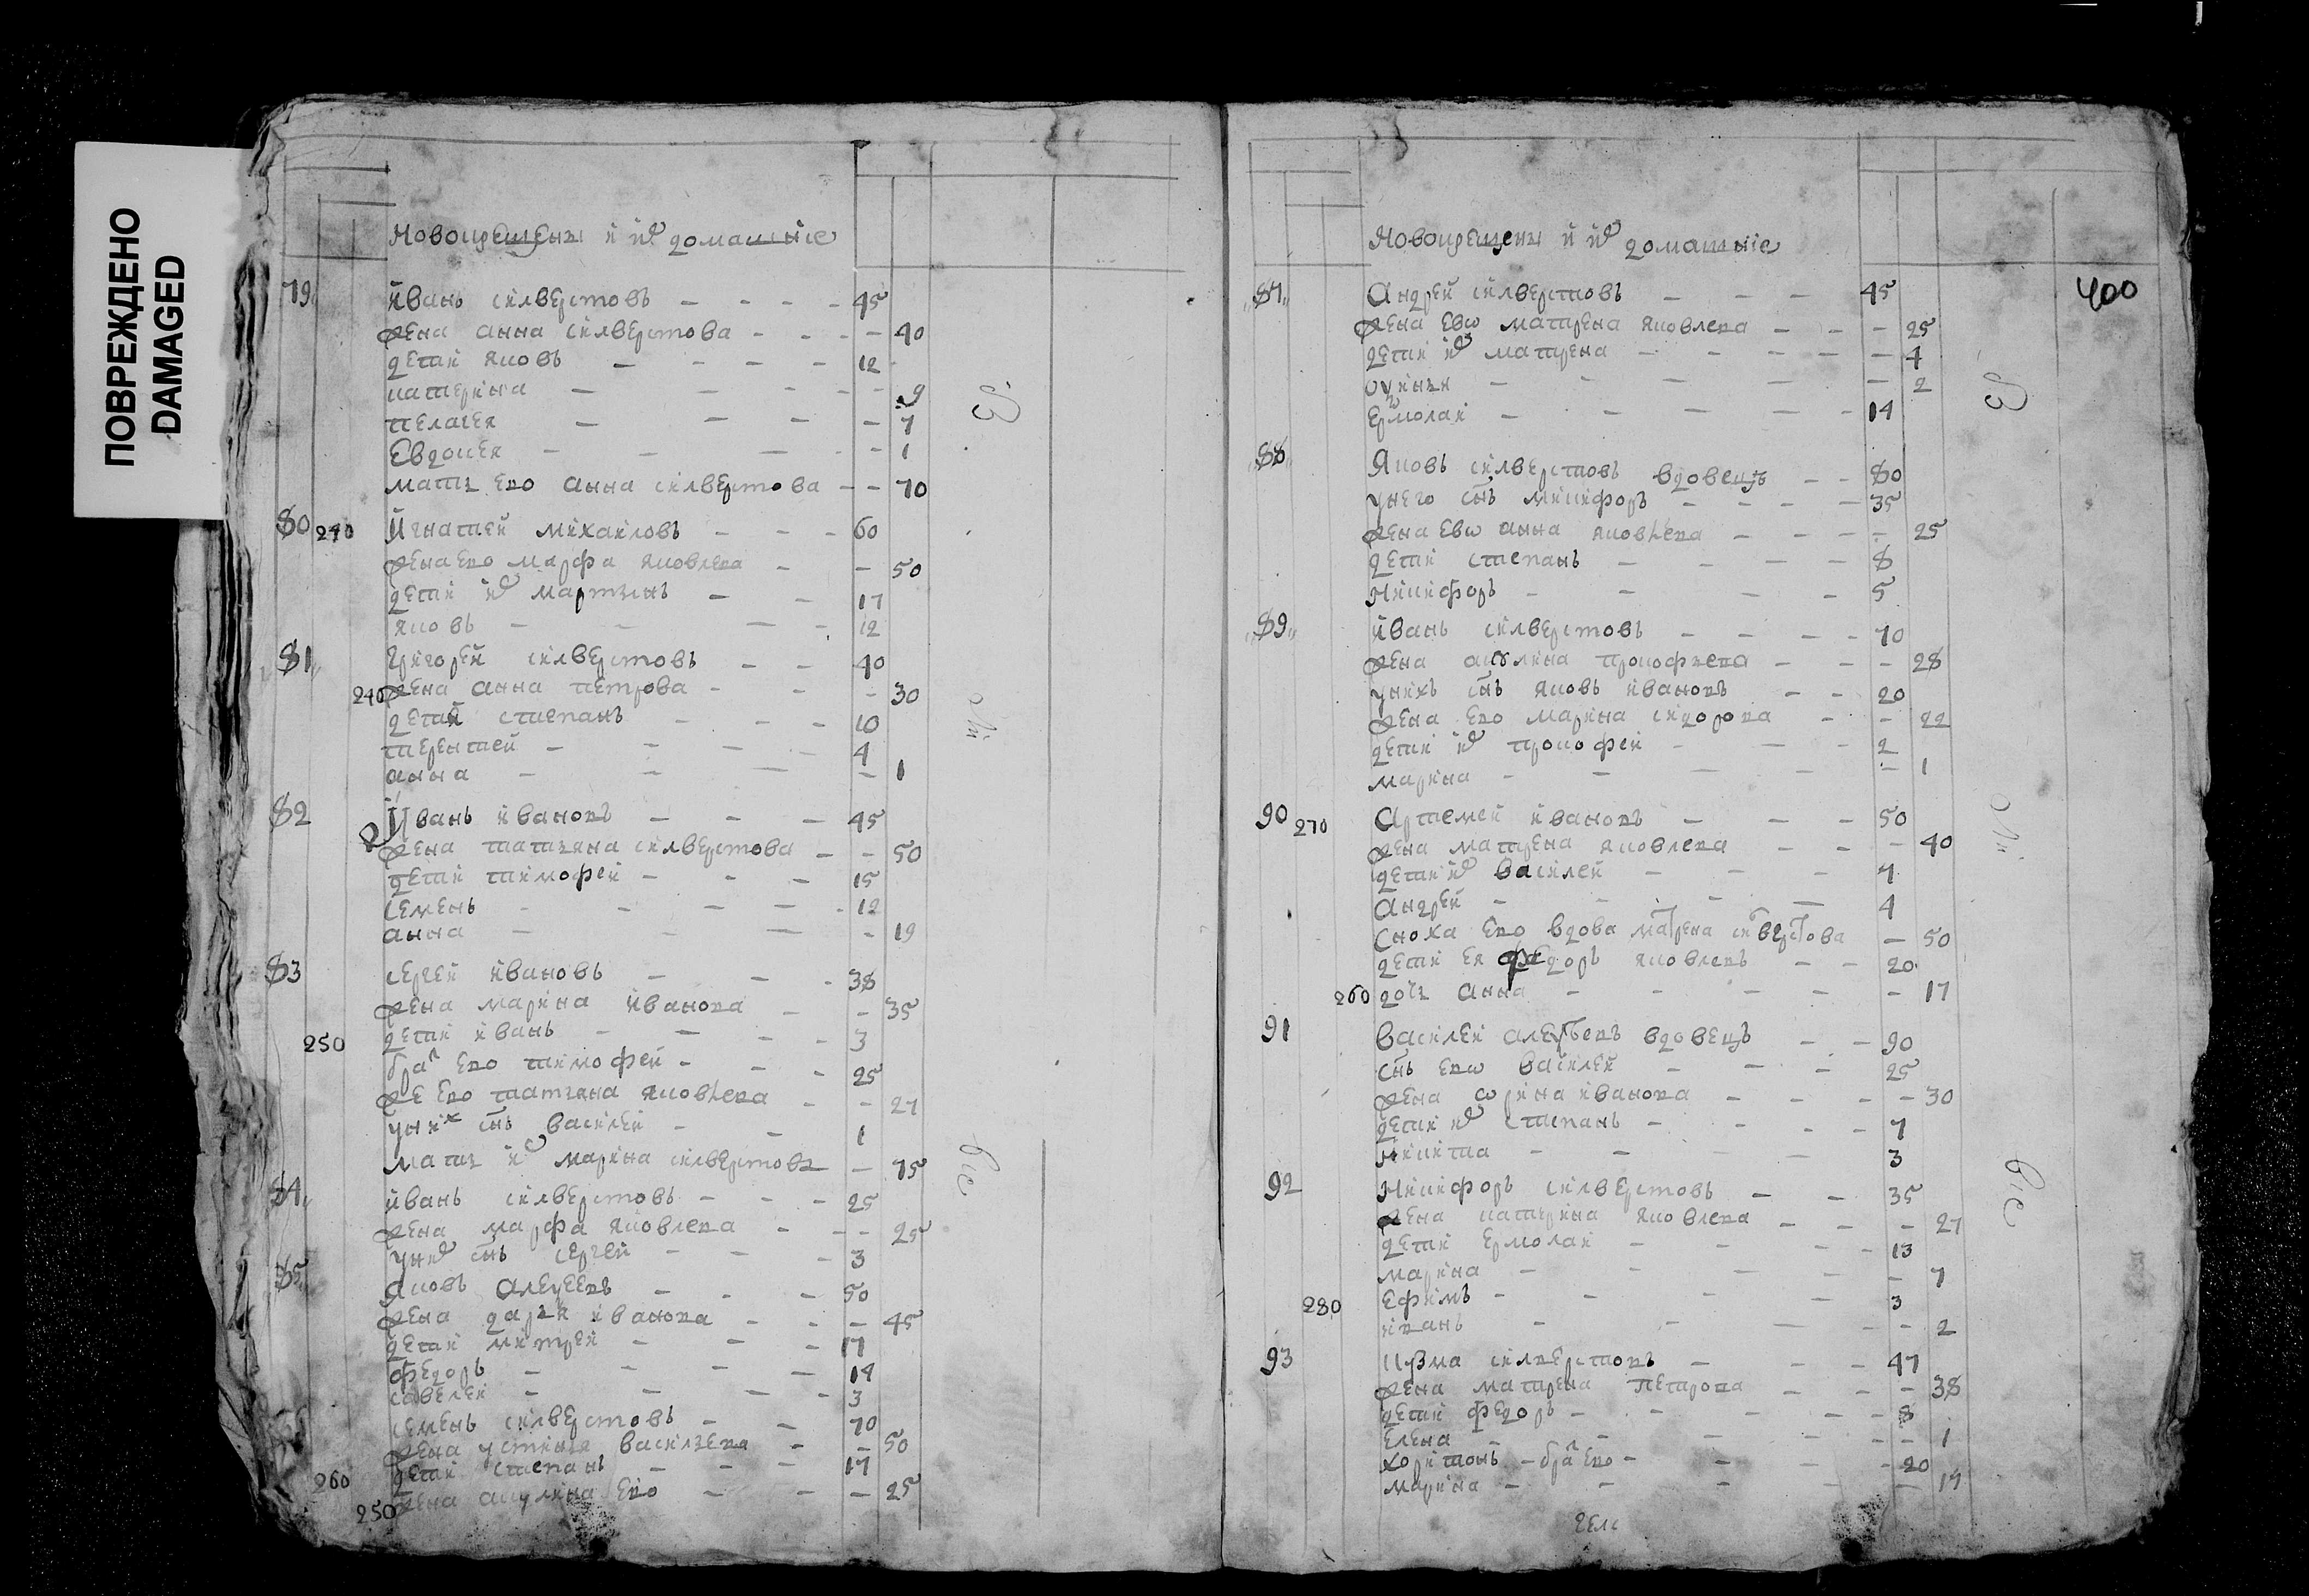 ПОВРЕЖДЕНО
DAMAGED
Новокрещены и их домашніе
79 иванъ силверстовъ 45
жена анна силверстова 40
дети яковъ 12
катерина 9
пелагея 7
Евдокея 1
мать ево анна силверстова 70
80 240 Игнатей михаиловъ 60
жена ево марфа яковлева 50
дети их мартынъ 17
яковъ 12
81 григорей силверстовъ 40
240 жена анна петрова 30
дети степанъ 10
терентей 4
анна 1
82 Иванъ ивановъ 45
жена татьяна силверстова 50
дети тимофеи 15
семенъ 12
анна 19
83 сергеи ивановъ 38
жена марина иванова 35
250 дети иванъ 3
брат ево тимофеи 25
же ево татьяна яковлева 27
у них снъ василеи 1
мать их марина силверстова 75
84 иванъ силверстовъ 25
жена марфа яковлева 25
у них снъ сергеи 3
85 яковъ алексеевъ 50
жена дарья иванова 45
дети митреи 17
федоръ 14
савелеи 3
семенъ силверстовъ 70
жена устинья васильева 50
260 дети степанъ 17
250 жена акулина ево 25
Новокрещены и их домашніе
400
87 Андрей силверстовъ 45
жена евѡ матрена яковлева 25
дети их матрена 4
2
Ермолаи 14
88 Яковъ силверстовъ вдовецъ 80
у него снъ никифоръ 35
жена евѡ анна яковлева 25
дети степанъ 8
Никифоръ 5
89 иванъ силверстовъ 70
жена акулина прокофьева 28
у нихъ снъ яковъ ивановъ 20
жена ево марина сидорова 22
дети их прокофеи 2
марина 1
90 270 Артемеи ивановъ 50
жена матрена яковлева 40
дети их василеи 7
Андреи 4
Сноха ево вдова матрена силверстова 50
дети ея федоръ яковлевъ 20
260 дочь анна 17
91 Василеи алексеевъ вдовецъ 90
снъ евѡ василеи 25
жена ѡрина иванова 30
дети их Степанъ 7
Никита 3
92 Никифоръ силверстовъ 35
жена катерина яковлева 27
дети ермолаи 13
марина 7
280 Ефимъ 3
иванъ 2
93 кузма силверстовъ 47
жена матрена петрова 38
дети федоръ 8
Елена 1
харитонъ - брат ево 20
марина 19